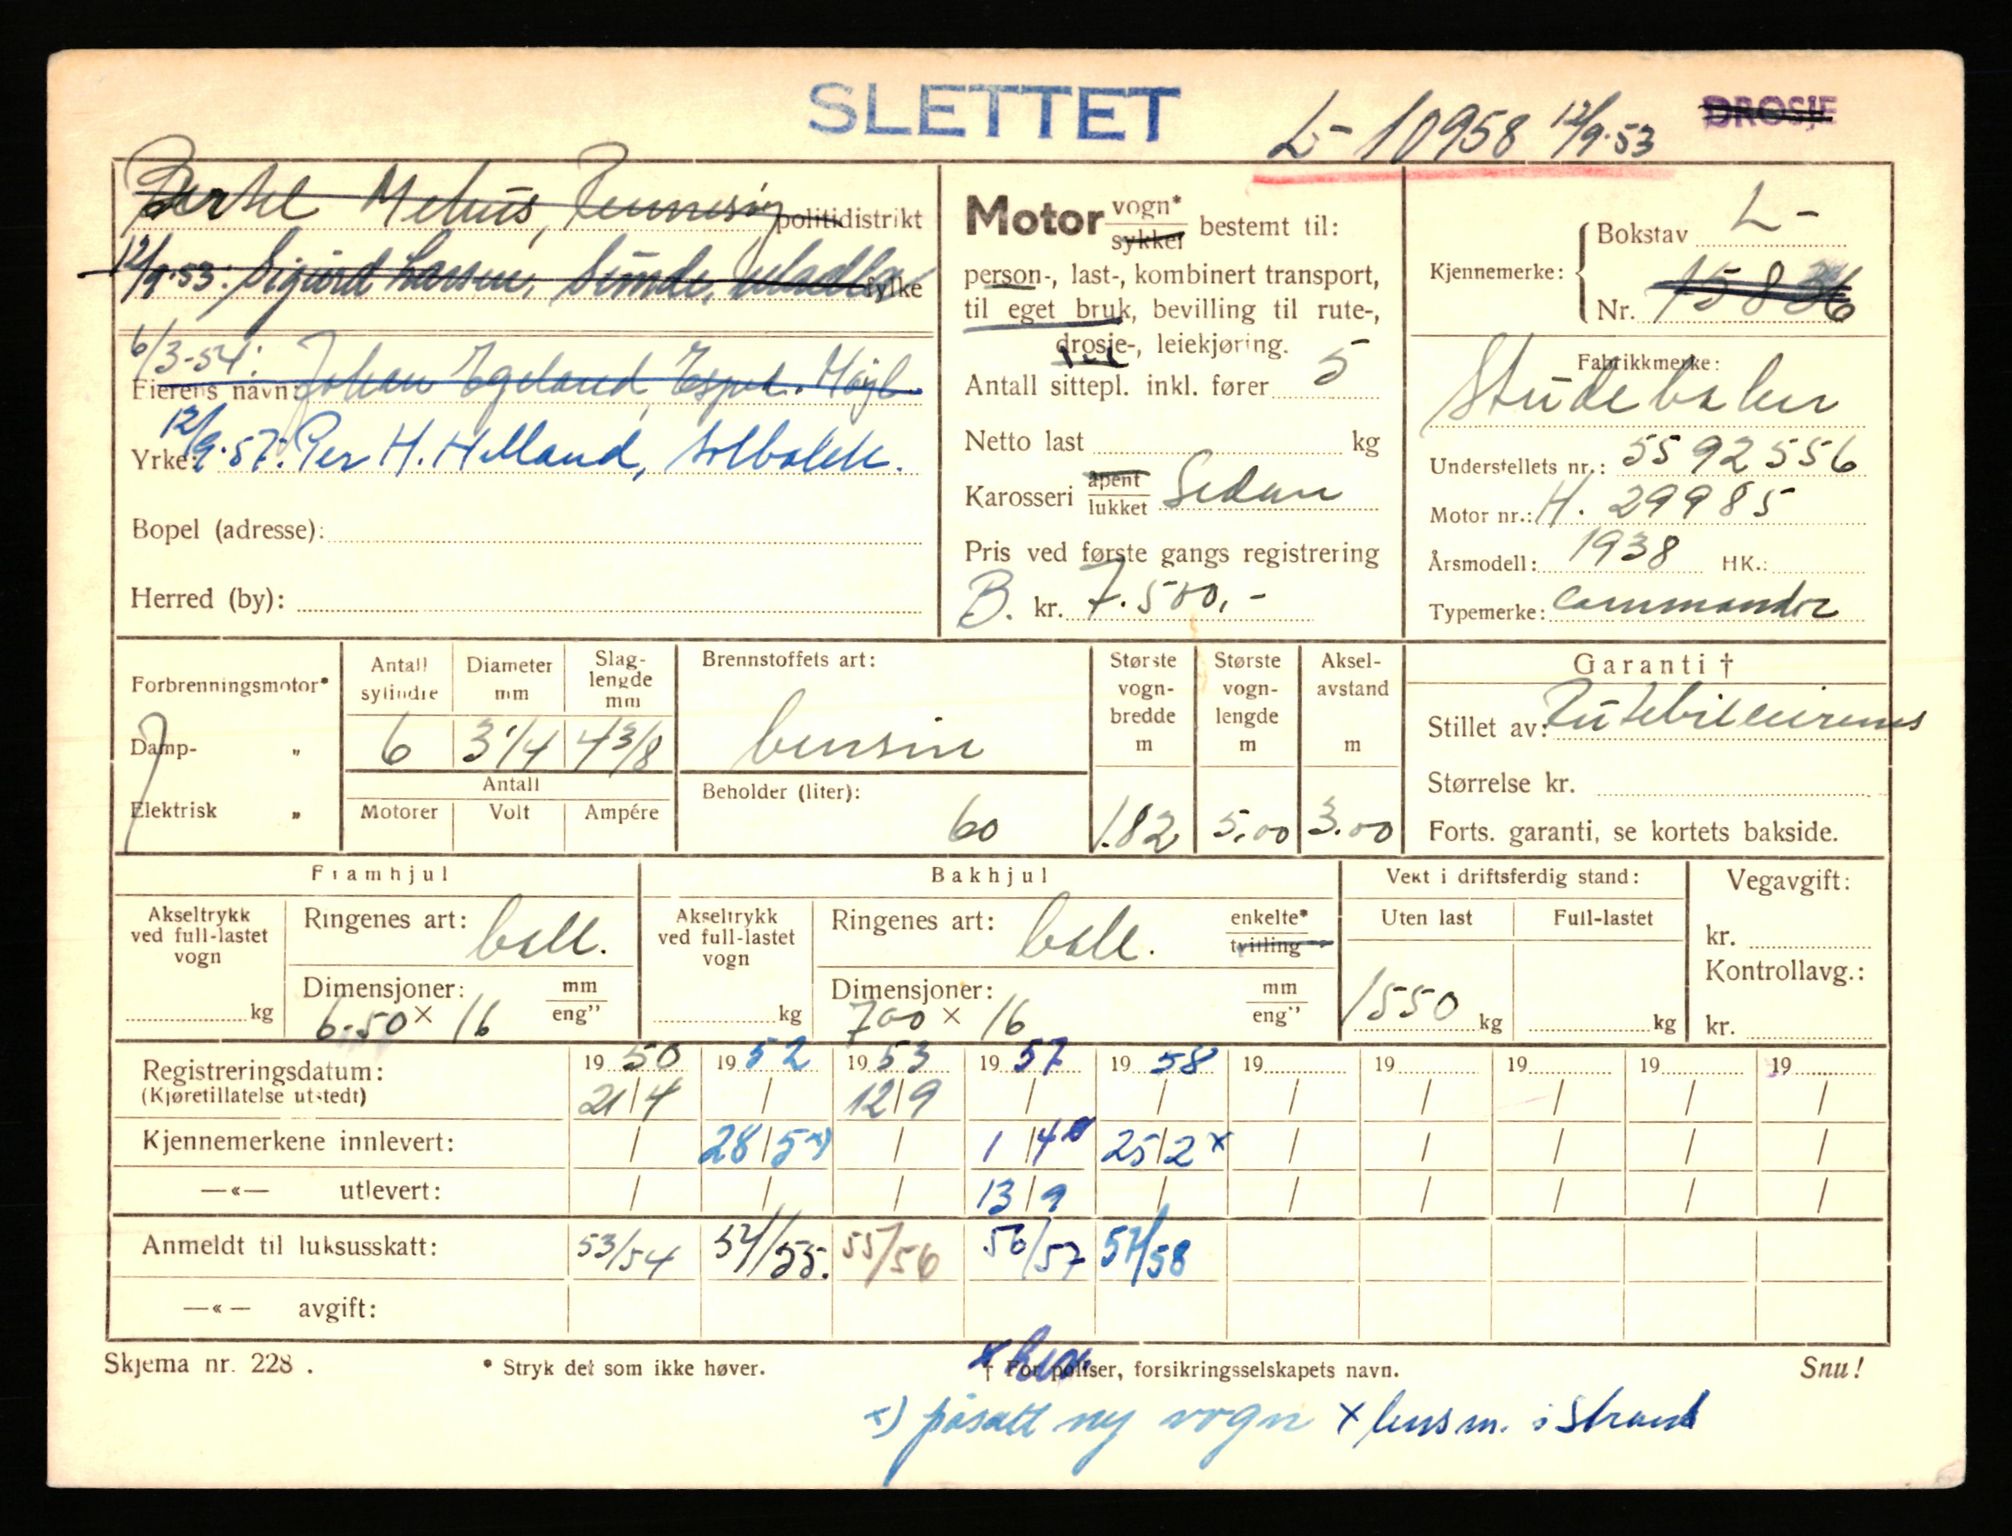 SLETTET
L- 10958 12/9.53
DROSJE
Bertel Mehus, Rennesøy politidistrikt
12/9.53: Sigurd Larsen, Sunde, Madla fylke
6/3-54: Eierens navn: Johan Egeland, Espel. Høgl.
Yrke: 12/9.57: Per H. Helland, Solbakk.
Bopel (adresse):
Herred (by):
Motor vogn* sykkel bestemt til:
person-, last-, kombinert transport,
til eget bruk, bevilling til rute-,
drosje-, leiekjøring.
Antall sittepl. inkl. fører 5
Netto last kg
Karosseri åpent lukket Sedan
Pris ved første gangs registrering
B. kr. 7.500,-
Kjennemerke: Bokstav L-
Nr. 15836
Fabrikkmerke:
Studebaker
Understellets nr.: 5592556
Motor nr.: H. 29985
Årsmodell: 1938 HK.:
Typemerke: Commander
Forbrenningsmotor*
Damp- „
Elektrisk „
Antall sylindre 6
Diameter mm 3 1/4
Slaglengde mm 4 3/8
Antall
Motorer Volt Ampére
Brennstoffets art:
bensin
Beholder (liter):
60
Største vognbredde m 1.82
Største vognlengde m 5.00
Akselavstand m 3.00
Garanti †
Stillet av: Rutebileiernes
Størrelse kr.
Forts. garanti, se kortets bakside.
Framhjul
Akseltrykk ved full-lastet vogn kg
Ringenes art: ball.
Dimensjoner: mm eng"
6.50 x 16
Bakhjul
Akseltrykk ved full-lastet vogn kg
Ringenes art: ball. enkelte* tvilling
Dimensjoner: mm eng"
700 x 16
Vekt i driftsferdig stand:
Uten last Full-lastet
1550 kg kg
Vegavgift:
kr.
Kontrollavg.:
kr.
Registreringsdatum: 1950 1952 1953 1957 1958 19 19 19 19 19
(Kjøretillatelse utstedt) 21/4 / 12/9 / / / / / / /
Kjennemerkene innlevert: / 28/5 x) / 1/4 x 25/2 x / / / / /
—«— utlevert: / / / 13/9 / / / / / /
Anmeldt til luksusskatt: 53/54 54/55. 55/56 56/57 57/58
—«— avgift:
Skjema nr. 228.
* Stryk det som ikke høver.
† For poliser, forsikringsselskapets navn.
Snu!
x) påsatt ny vogn x lensm. i Strand